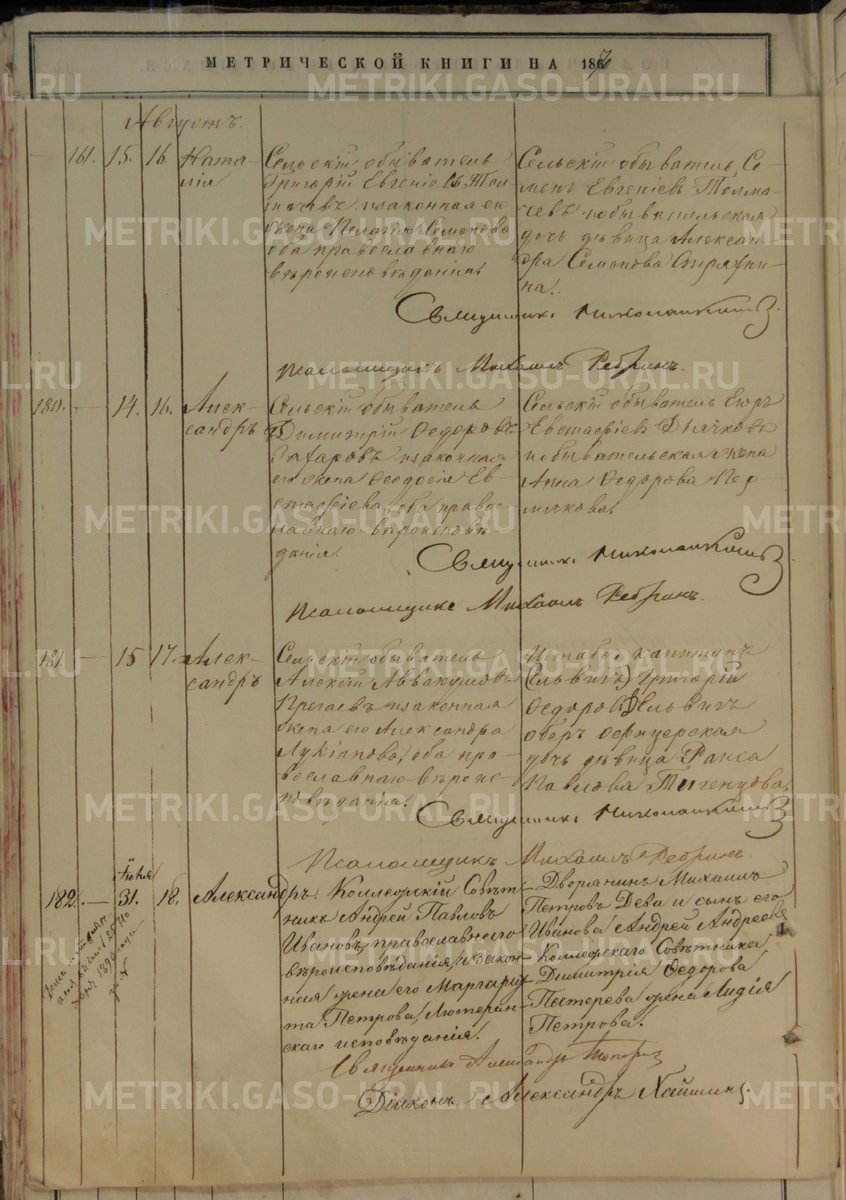 МЕТРИЧЕСКОЙ КНИГИ НА 1867
METRIKI.GASO-URAL.RU
Августъ.
161. 15. 16. Ната-
лія
Сельскій обыватель
Григорій Евгеніевъ Тол-
мачевъ и законная его
жена Семенова
оба православнаго
вѣроисповѣданія.
Сельскій обыватель Се-
менъ Евгеніевъ Толма-
чевъ и обывательская
дочь дѣвица Алексан-
дра Семенова
на.
Священникъ
Псаломщикъ Михаилъ Ребринъ.
180. — 14. 16. Алек-
сандръ
Сельскій обыватель
Димитрій Ѳедоровъ
Сафаровъ и законная
его жена Ѳеодосія Ев-
стафіева, оба право-
славнаго вѣроисповѣ-
данія.
Сельскій обыватель
Евстафіевъ Дьячковъ
и обывательская жена
Анна Ѳедорова
Священникъ
Псаломщикъ Михаилъ Ребринъ.
181. — 15 17. Алек-
сандръ
Сельскій обыватель
Алексій Аввакумовъ
и законная
жена его Александра
Лукіянова, оба пра-
вославнаго вѣроис-
повѣданія.
Штабсъ капитанъ
Григорій
Ѳедоровъ Ельвихъ
оберъ офицерская
дочь дѣвица Раиса
Павлова
Священникъ
Псаломщикъ Михаилъ Ребринъ.
182. — Іюля
31. 18. Александръ.
Коллежскій Совѣт-
никъ Андрей Павловъ
Ивановъ, православнаго
вѣроисповѣданія, и закон-
ная жена его Маргари-
та Петрова, Лютеран-
скаго исповѣданія.
Дворянинъ Михаилъ
Петровъ Дева и сынъ его
Иванова Андрей Андреевъ
Коллежскаго Совѣтника
Димитрія Ѳедорова
Пестерева жена Лидія
Петрова.
Священникъ Александръ
Діаконъ Александръ